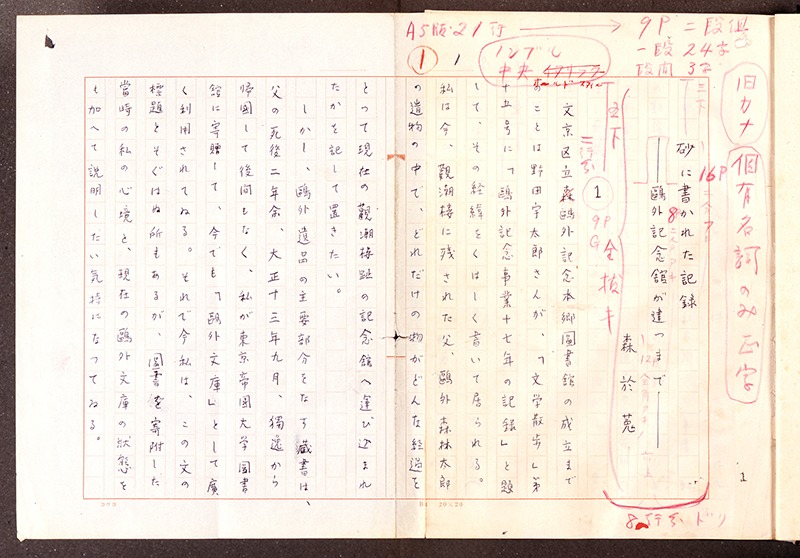 A5版・21行 → 9P 二段組
一段 24字
段間 3字
ノンブル
中央
1
1
旧カナ
個有名詞のみ正字
三下
16P
砂に書かれた記録
8
――鷗外記念館が建つまで――
森 於菟
12P
五下
二行分
1
9P
G
全抜キ
文京区立森鷗外記念本郷図書館の成立まで
のことは野田宇太郎さんが、「文学散歩」第
十五号に「鷗外記念事業十七年の記録」と題
して、その経緯をくはしく書いて居られる。
私は今、観潮楼に残された父、鷗外森林太郎
の遺物の中で、どれだけの物がどんな経過を
とつて現在の観潮楼趾の記念館へ運び込まれ
たかを記して置きたい。
しかし、鷗外遺品の主要部分をなす蔵書は、
父の死後二年余、大正十三年九月、獨逸から
帰国して後間もなく、私が東京帝国大学図書
館に寄贈して、今でも「鷗外文庫」として廣
く利用されてゐる。それで今私は、この文の
標題とそぐはぬ所もあるが、図書を寄附した
當時の私の心境と、現在の鷗外文庫の状態を
も加へて説明したい気持になつてゐる。
8行分ドリ
1
コクヨ
B4 20×20